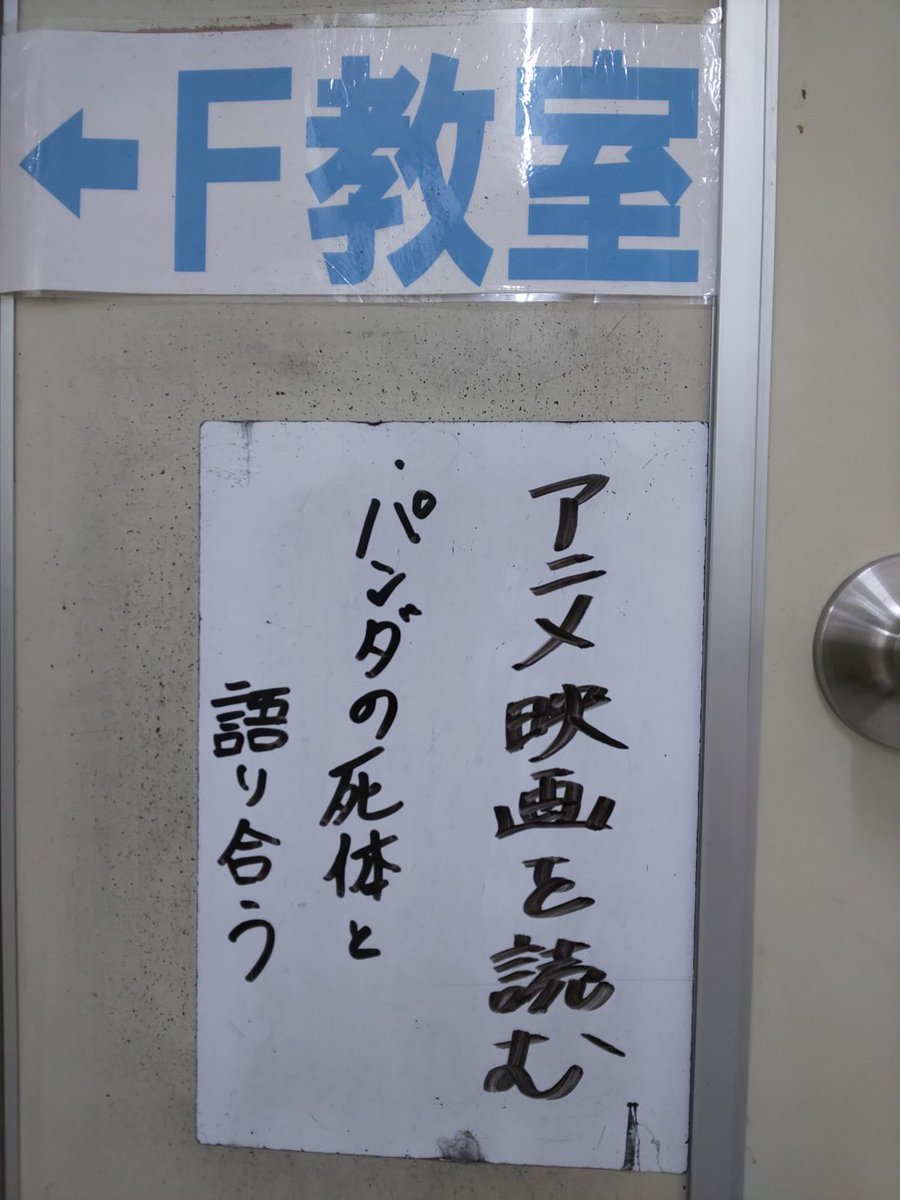 ←F教室
アニメ映画を読む
・パンダの死体と
語り合う